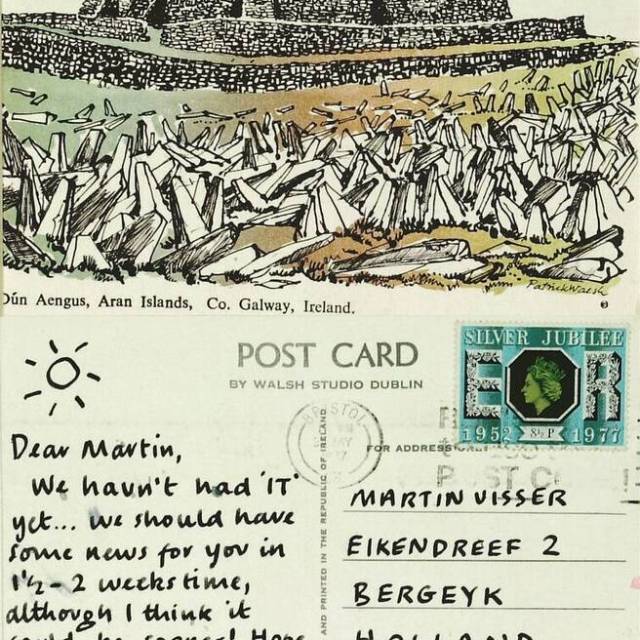 Patrick Walsh
Dún Aengus, Aran Islands, Co. Galway, Ireland.
POST CARD
BY WALSH STUDIO DUBLIN
SILVER JUBILEE
E R
1952 8½P 1977
BRISTOL
FOR ADDRESS ONLY
AND PRINTED IN THE REPUBLIC OF IRELAND
Dear Martin,
We havn't had 'IT'
yet... we should have
some news for you in
1½-2 weeks time,
although I think it
could be sooner! Hope
MARTIN VISSER
EIKENDREEF 2
BERGEYK
HOLLAND